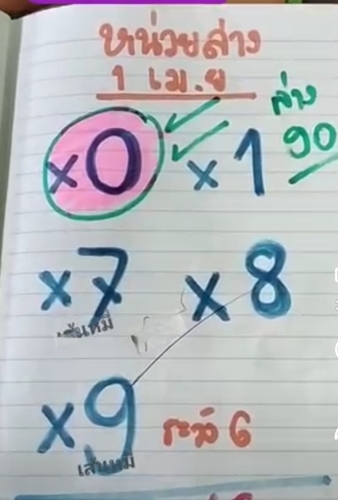 หน่วยล่าง
1 เม.ย
ล่าง
90
x0 x1
x7 x8
เส้นหมี่
x9 ระวัง 6
เส้นหมี่